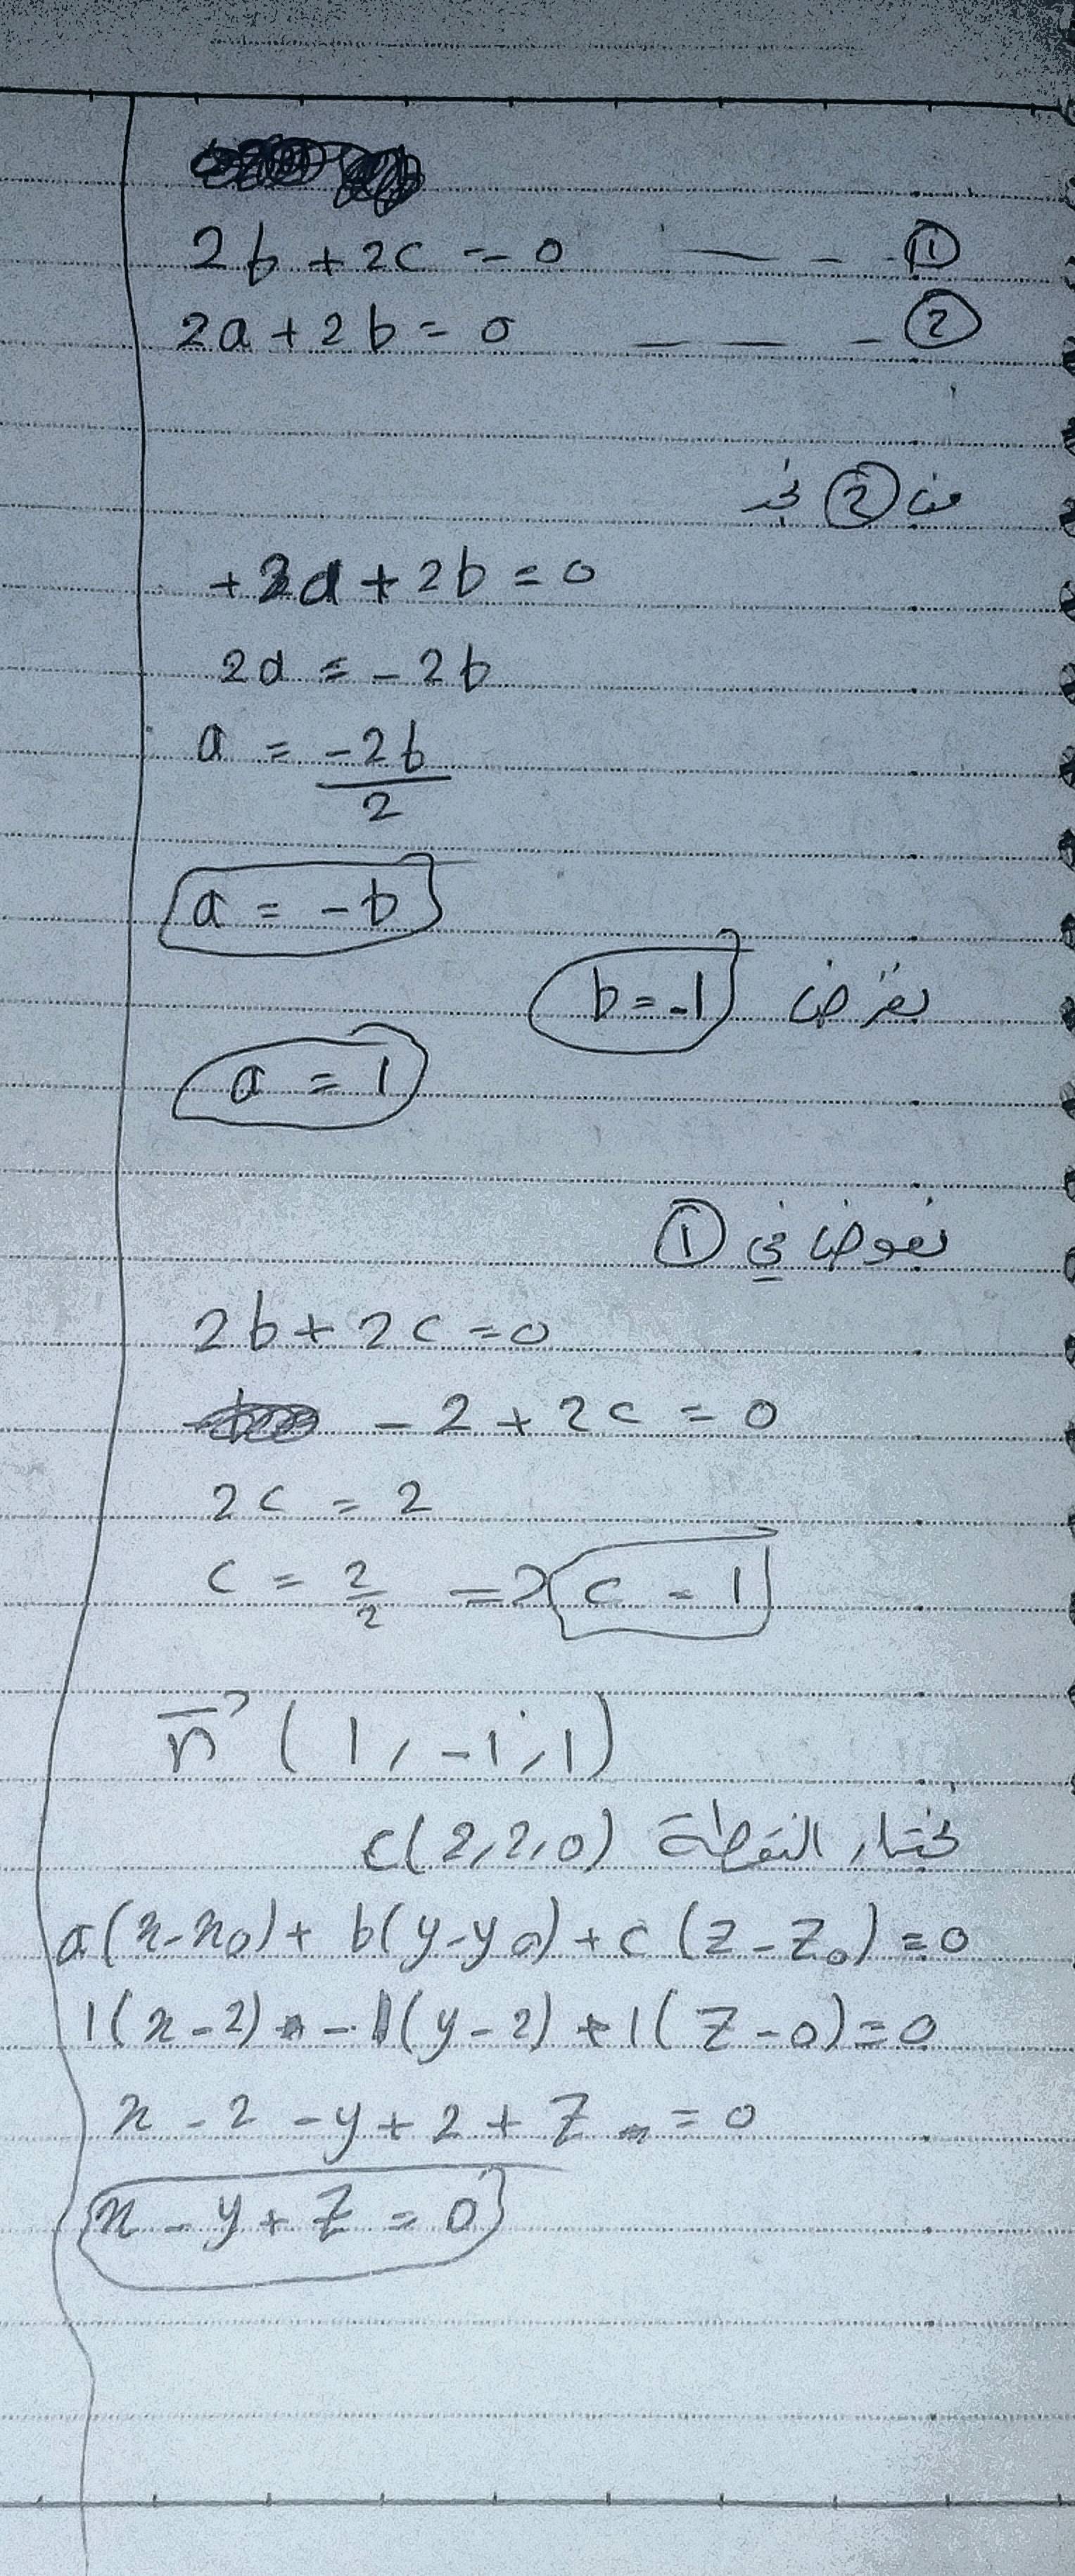 2b + 2c = 0 — - - ①
2a + 2b = 0 — — - ②
من ② نجد
+2a + 2b = 0
2a = - 2b
a = -2b/2
a = -b
بفرض b = -1
a = 1
نعوض في ①
2b + 2c = 0
- 2 + 2c = 0
2c = 2
c = 2/2 => c = 1
n⃗ (1, -1, 1)
نختار النقطة C(2,2,0)
a(x-x₀) + b(y-y₀) + c(z-z₀) = 0
1(x-2) - 1(y-2) + 1(z-0) = 0
x - 2 - y + 2 + z = 0
x - y + z = 0